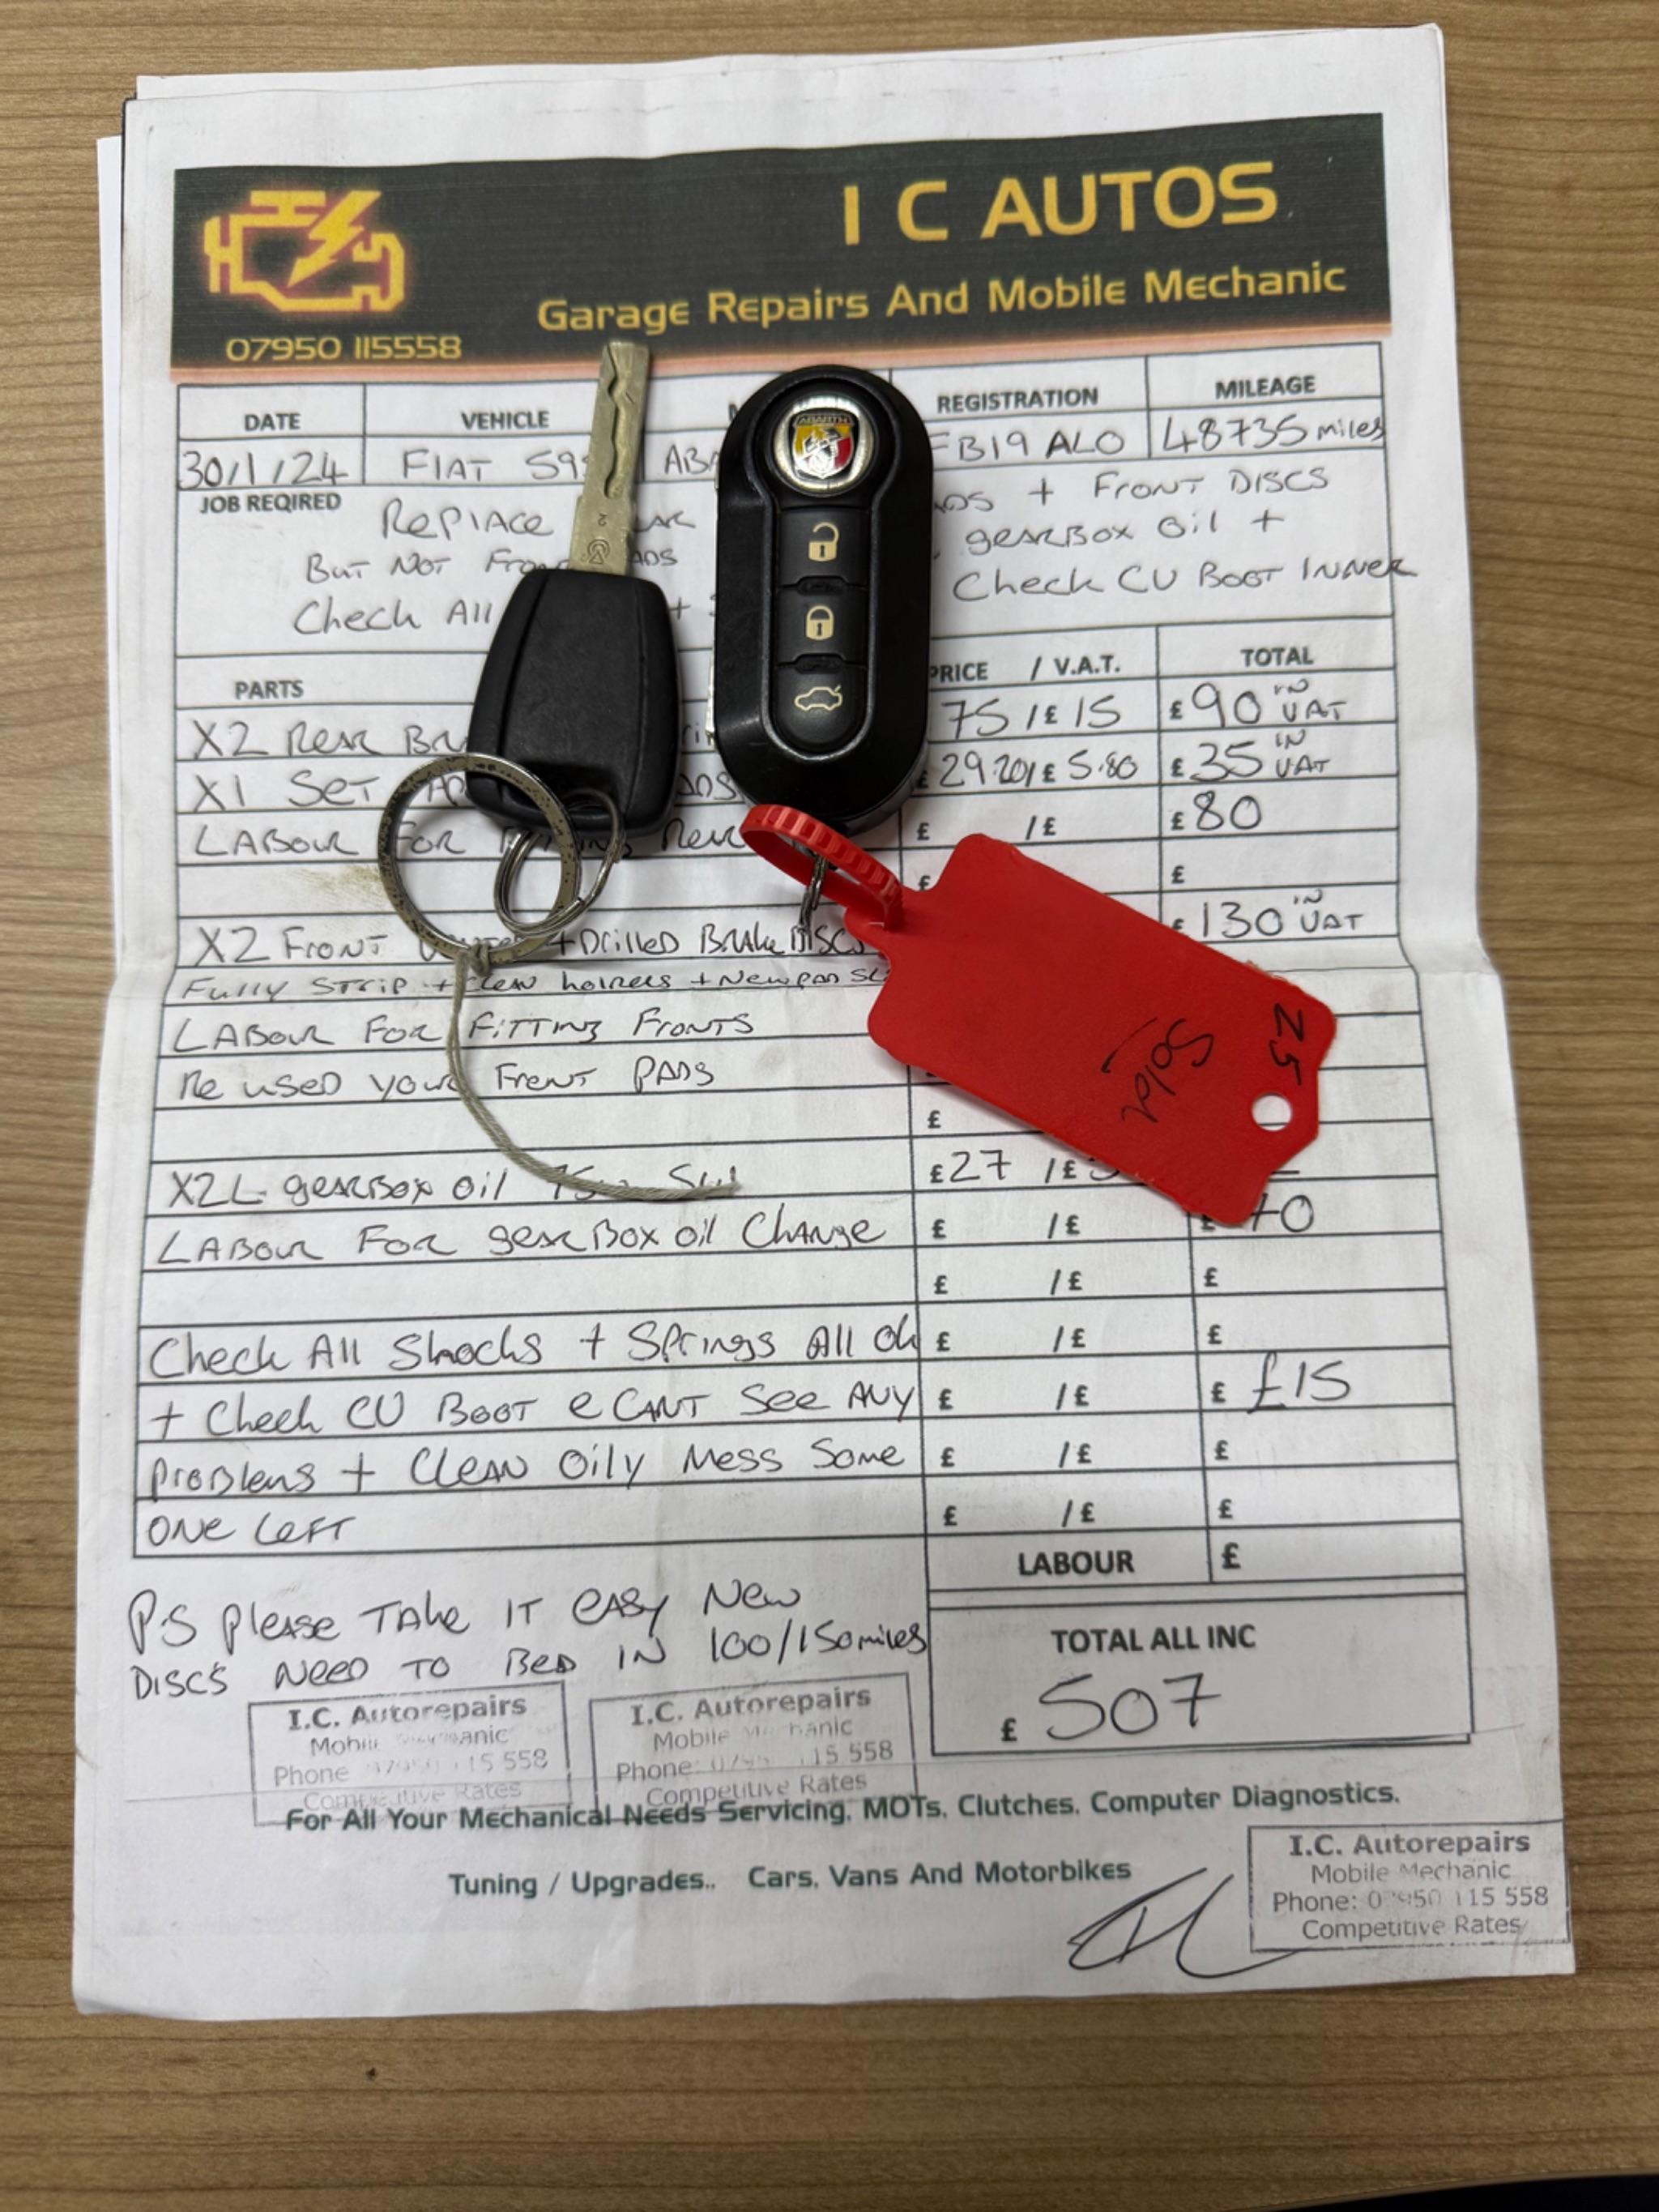 I C AUTOS
Garage Repairs And Mobile Mechanic
07950 115558
DATE VEHICLE REGISTRATION MILEAGE
30/1/24 FIAT 59 AB B19 ALO 48735 miles
JOB REQIRED
Replace + Front Discs
But Not gearbox oil +
Check All + Check CV Boot Inner
PARTS PRICE / V.A.T. TOTAL
X2 Rear 75 / £ 15 £90 in VAT
X1 Set £29.20 / £ 5.80 £35 in VAT
Labour For £ / £ £80
£ £
X2 Front + Drilled Brake Discs £130 in VAT
Fully Strip + Clean + New pad
Labour For Fitting Fronts
Re used your Front Pads
£
X2L gearbox oil £27 / £
Labour For gearBox oil Change £ / £ £
£ / £ £
Check All Shocks + Springs All Ok £ / £ £
+ Check CV Boot e Cant See Any £ / £ £ £15
Problems + Clean Oily Mess Some £ / £ £
One Left £ / £ £
LABOUR £
P.S Please Take It easy New
Discs Need to Bed in 100/150 miles
TOTAL ALL INC
£ 507
I.C. Autorepairs
Phone 15 558
Rates
I.C. Autorepairs
Mobile
Phone: 115 558
Competitive Rates
For All Your Mechanical Needs Servicing, MOTs, Clutches, Computer Diagnostics.
Tuning / Upgrades.. Cars, Vans And Motorbikes
I.C. Autorepairs
Mobile Mechanic
Phone: 07950 115 558
Competitive Rates
ABARTH
25